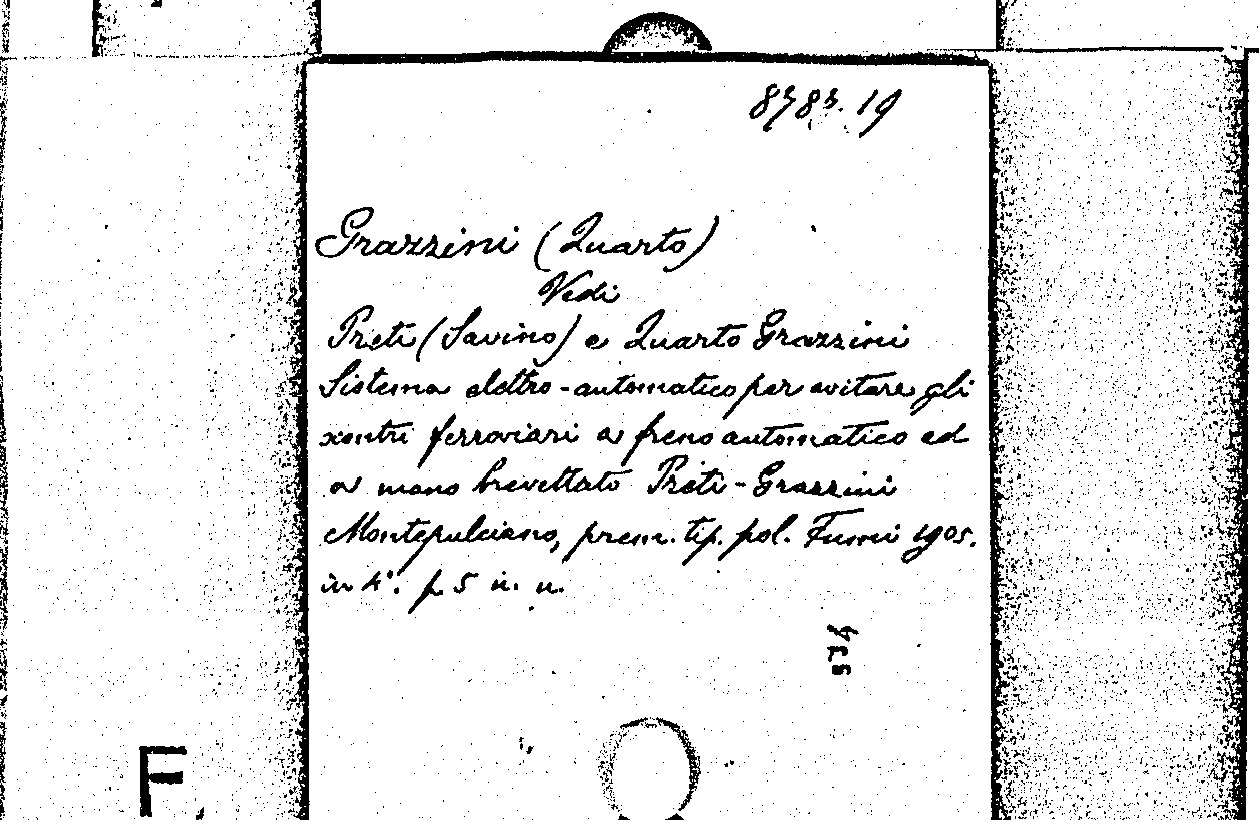 8787. 19
Grazzini (Quarto)
Vedi
Preti (Savino) e Quarto Grazzini
Sistema elettro-automatico per evitare gli
scontri ferroviari a freno automatico ed
a mano brevettato Preti-Grazzini
Montepulciano, prem. tip. pol. Fumi 1905.
in 4°. p. 5 n. n.
F